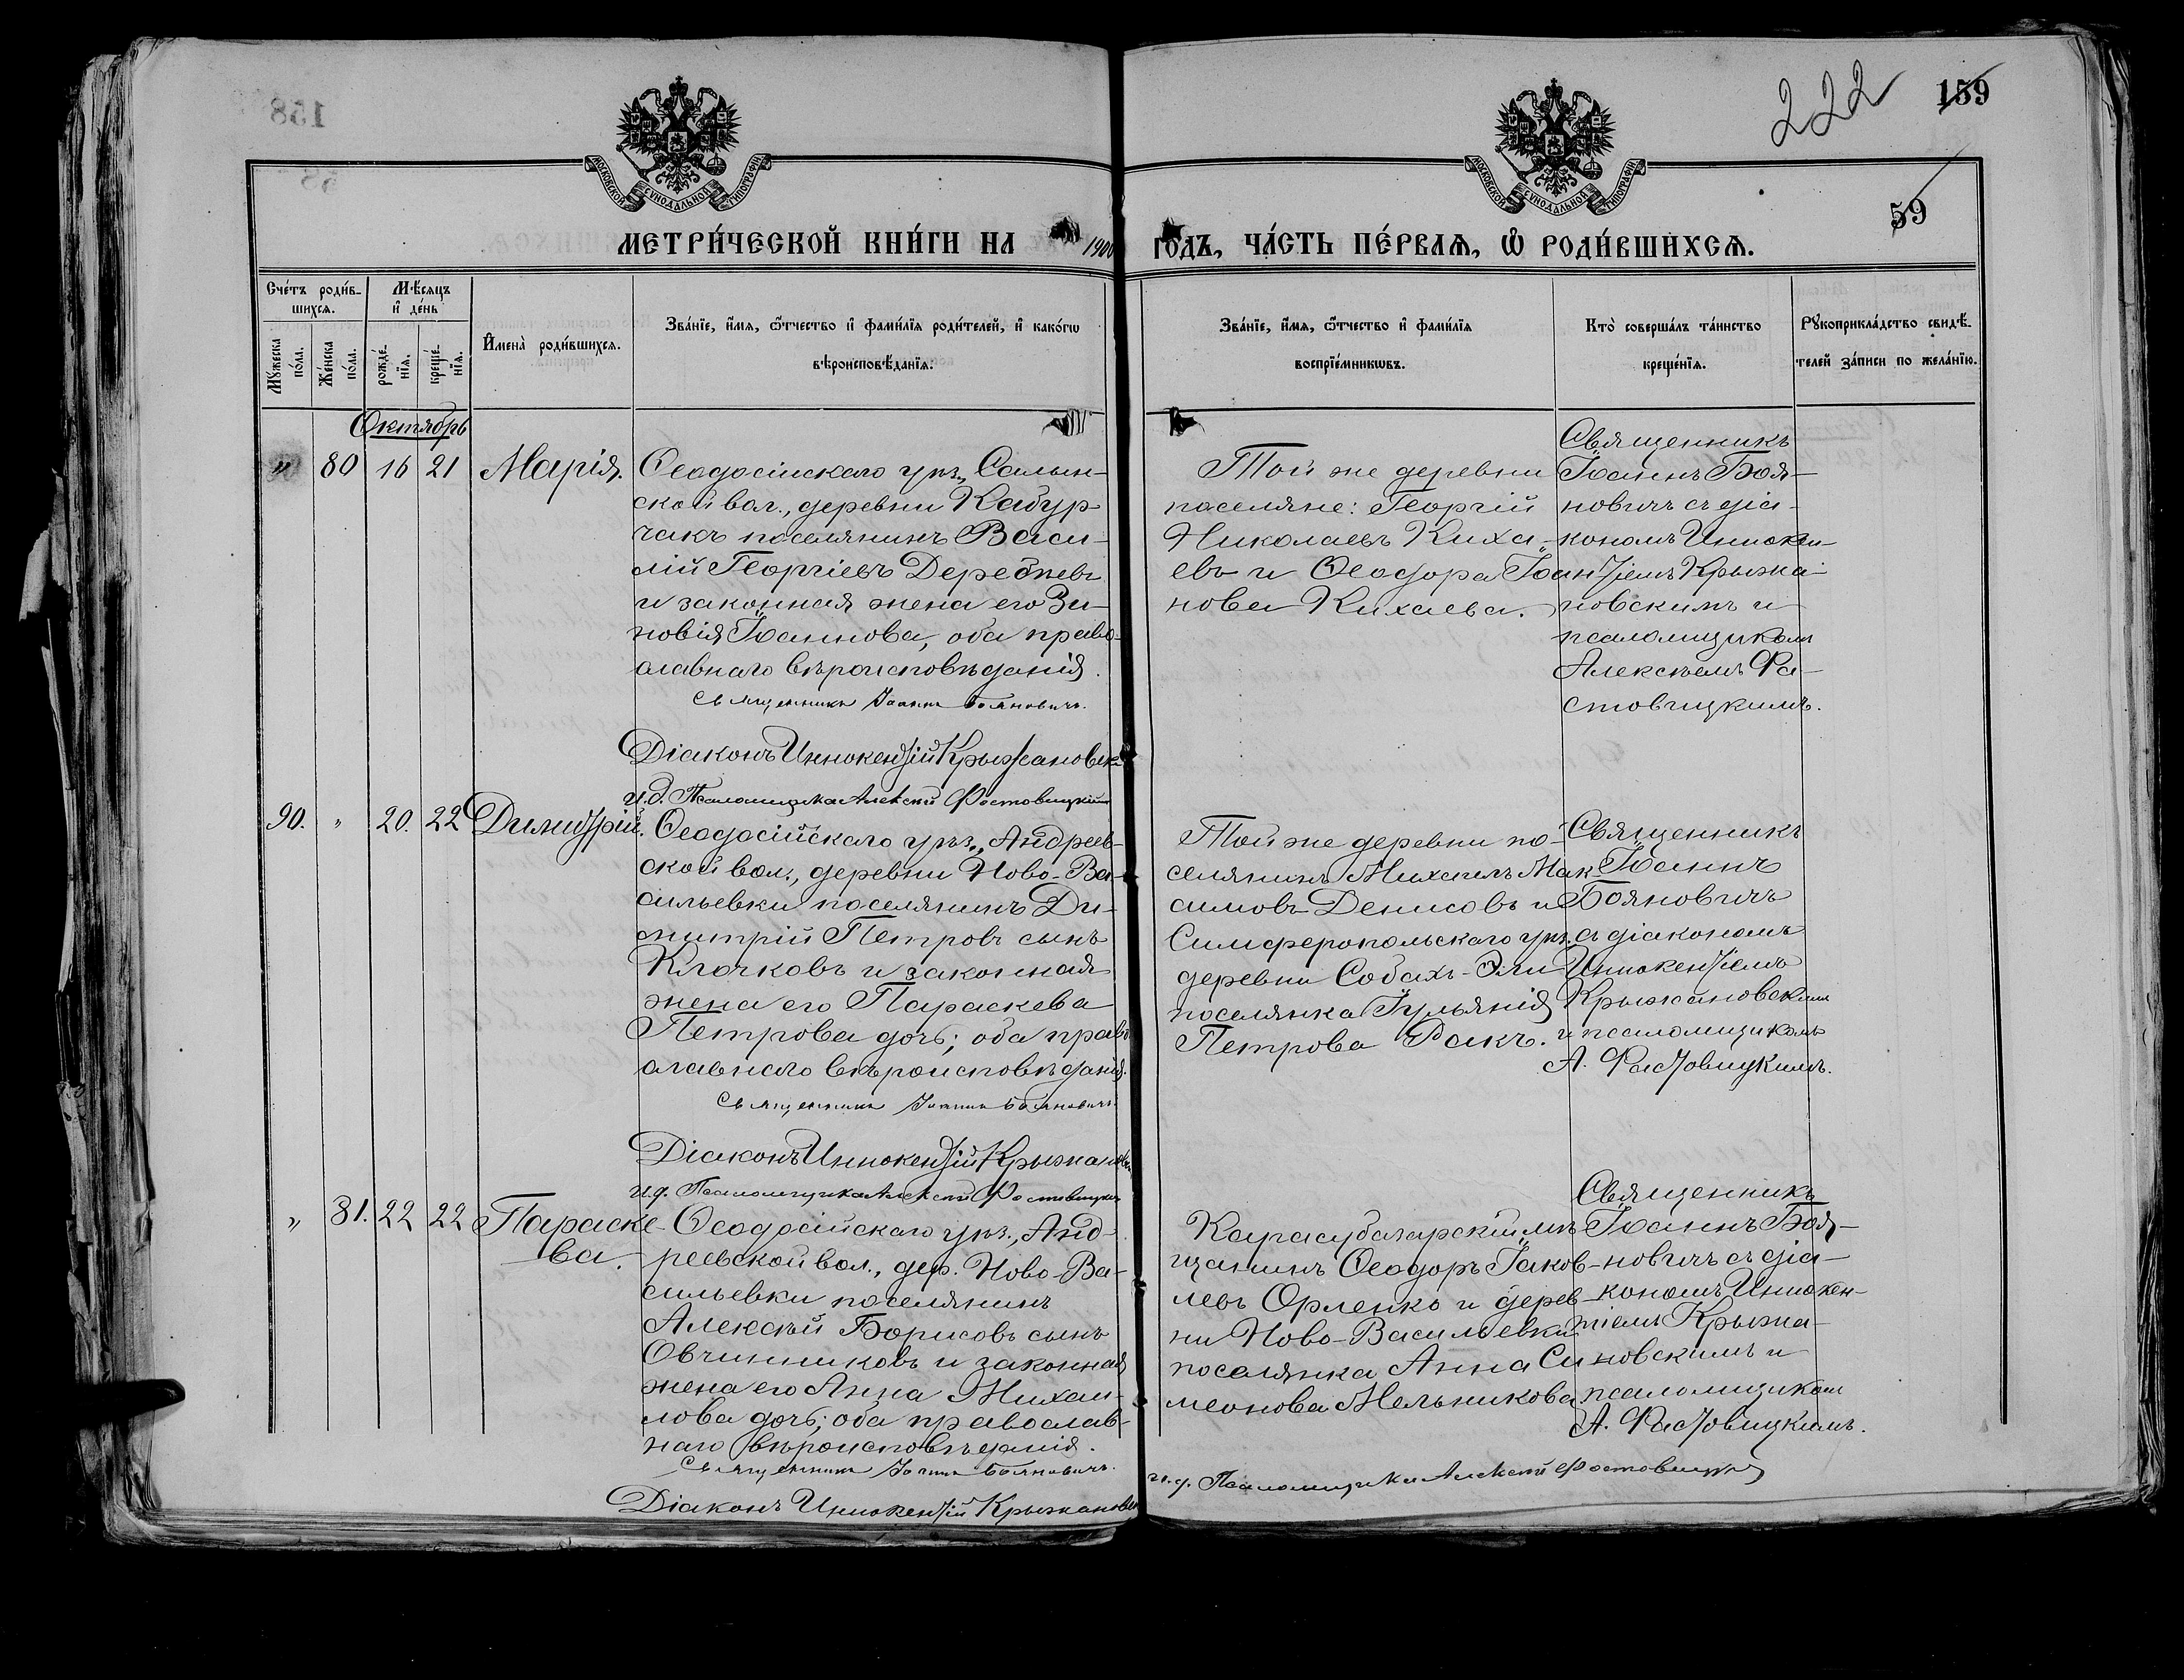 222
159
158
59
МОСКОВСКОЙ СѴНОДАЛЬНОЙ ТИПОГРАФІИ
МОСКОВСКОЙ СѴНОДАЛЬНОЙ ТИПОГРАФІИ
МЕТРИ́ЧЕСКОЙ КНИ́ГИ НА 1900 ГОДЪ, ЧА́СТЬ ПЕ́РВАѦ, Ѽ РОДИ́ВШИХСѦ.
Сче́тъ роди́в-
шихсѧ.
Мꙋ́жеска по́ла.
Же́нска по́ла.
Мѣ́сяцъ
и҆ де́нь
рожде́-
нїѧ.
креще́-
нїѧ.
И҆мена̀ роди́вшихсѧ.
Зва́нїе, и҆́мѧ, ѻ҆́тчество и҆ фами́лїѧ роди́телей, и҆ како́гѡ
вѣроисповѣ́данїѧ.
Зва́нїе, и҆́мѧ, ѻ҆́тчество и҆ фами́лїѧ
воспрїе́мникѡвъ.
Кто̀ соверша́лъ та́инство
креще́нїѧ.
Рꙋкоприкла́дство свидѣ́-
телей за́писи по жела́нїю.
Октябрь
" 80 16 21 Марія.
Ѳеодосійскаго уѣз., Салын-
ской вол., деревни Кабур-
чакъ поселянинъ Васи-
лій Георгіевъ
и законная жена его Зи-
новія Іоаннова, оба право-
славнаго вѣроисповѣданія.
Священникъ Іоаннъ Бояновичъ.
Діаконъ Иннокентій Крыжановск
и.д. Псаломщика Алексѣй Фастовицкій
Той же деревни
поселяне: Георгій
Николаевъ Киха-
евъ и Ѳеодора Іоан-
нова Кихаева.
Священникъ
Іоаннъ Боя-
новичъ съ діа-
кономъ Иннокен-
тіемъ Крыжа-
новскимъ и
псаломщикомъ
Алексѣемъ Фа-
стовицкимъ.
90. " 20. 22 Димитрій.
Ѳеодосійскаго уѣз., Андреев-
ской вол., деревни Ново-Ва-
сильевки поселянинъ Ди-
митрій Петровъ сынъ
Клочковъ и законная
жена его Параскева
Петрова дочь; оба право
славнаго вѣроисповѣданія.
Священникъ Іоаннъ Бояновичъ.
Діаконъ Иннокентій Крыжановск
и.д. Псаломщика Алексѣй Фастовицкій
Той же деревни по-
селянинъ Михаилъ Мак-
симовъ Денисовъ и
Симферопольскаго уѣз.
деревни Собахъ-Эли
поселянка Іульянія
Петрова Факъ.
Священникъ
Іоаннъ
Бояновичъ
съ діакономъ
Иннокентіемъ
Крыжановскимъ
и псаломщикомъ
А. Фастовицкимъ.
" 81. 22 22 Параске-
ва.
Ѳеодосійскаго уѣз., Анд-
реевской вол., дер. Ново-Ва-
сильевки поселянинъ
Алексѣй Борисовъ сынъ
Овчинниковъ и законная
жена его Анна Михаи-
лова дочь; оба православ-
наго вѣроисповѣданія.
Священникъ Іоаннъ Бояновичъ.
Діаконъ Иннокентій Крыжановск
Карасубазарскій мѣ-
щанинъ Ѳеодоръ Іаков-
левъ Орленко и дерев-
ни Ново-Васильевки
поселянка Анна Си
меонова Мельникова
Священникъ
Іоаннъ Боя-
новичъ съ діа-
кономъ Иннокен-
тіемъ Крыжа-
новскимъ и
псаломщикомъ
А. Фастовицкимъ.
и.д. Псаломщика Алексѣй Фастовицкій